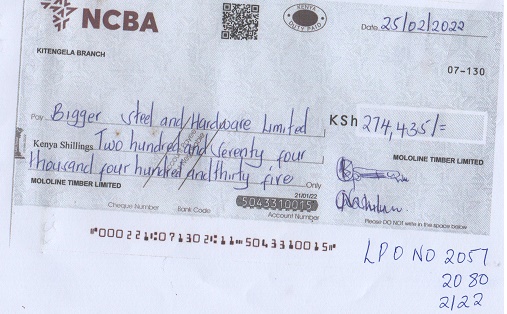 NCBA
KENYA
DUTY PAID
Date 25/02/2022
KITENGELA BRANCH
07-130
Pay Bigger steel and Hardware Limited
KSh 274,435/=
Kenya Shillings Two hundred and seventy four
thousand four hundred and thirty five Only
MOLOLINE TIMBER LIMITED
MOLOLINE TIMBER LIMITED
21/01/22
5043310015
Cheque Number Bank Code Account Number
Please DO NOT write in the space below
"000221:07130 2:11 5043310015"
LPO NO 2057
2080
2122